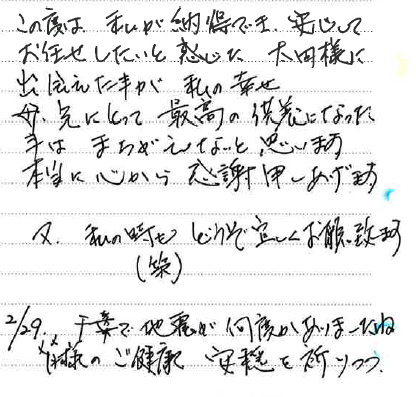 この度は 私が納得でき、安心して
お任せしたいと感じた 太田様に
出会えた事が 私の幸せ
母、兄にとって 最高の供養になった
事は まちがえないと思います
本当に心から 感謝申しあげます
又、私の時も どうぞ宜しくお願い致します
(笑)
2/29. 千葉で地震が何度かありましたね
皆様の ご健康 安穏を祈りつつ.